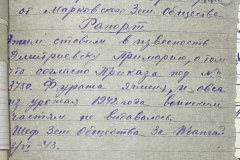 от Марковского Зем. Общества
Рапорт
Этим ставим в известность
Дмитриевску Примарию, о том
что согласно Приказа под №
3750. Фуража ячменя, и овса
из урожая 1942 года воинским
частям не выдавалось.
Шеф Зем. Общества За
VI 43.